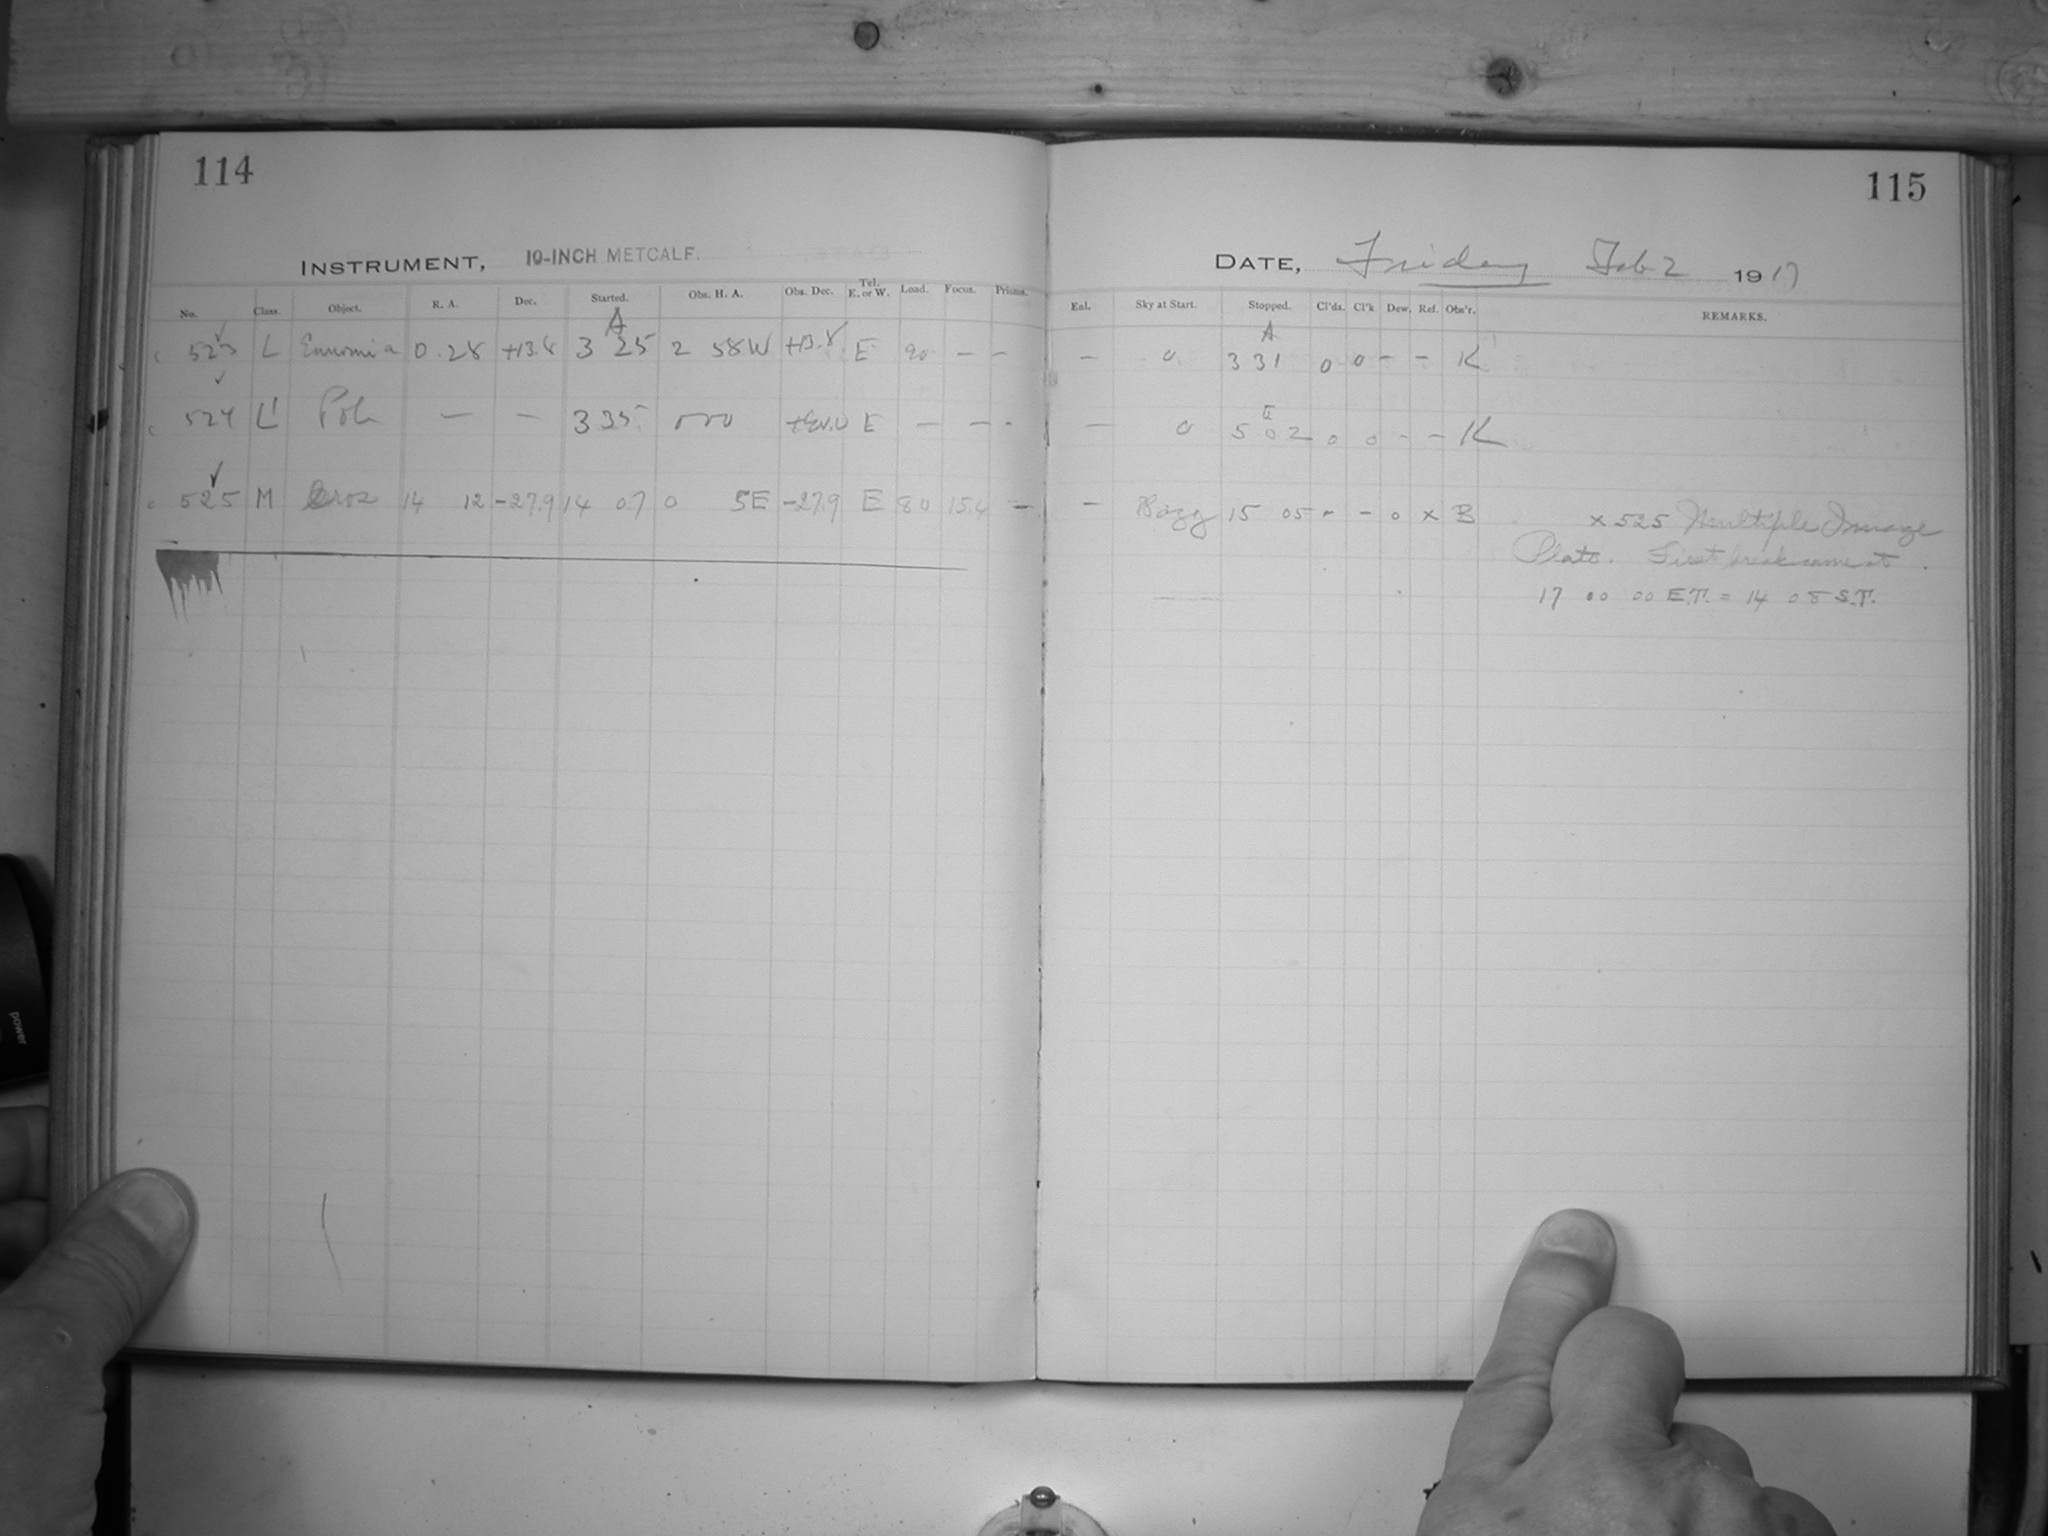 114
115
INSTRUMENT, 10-INCH METCALF.
DATE, Friday Feb 2 1917
No. Class. Object. R. A. Dec. Started. Obs. H. A. Obs. Dec. Tel. E. or W. Load. Focus. Prisms.
Exl. Sky at Start. Stopped. Cl'ds. Cl'k Dew. Ref. Obs'r. REMARKS.
A
A
523 L Eunomia 0.28 +13.8 3 25 2 58W +13.8 E 90 – –
– 0 3 31 0 0 – – K
524 L Pole – – 3 35 E – – -
– 0 5 02 0 0 – – K
525 M Eros 14 12 -27.9 14 07 0 5E -27.9 E 80 15.4 –
– Hazy 15 05 – – 0 x B x 525 Multiple Image
Plate. First break came at
17 00 00 E.T. = 14 08 S.T.
power